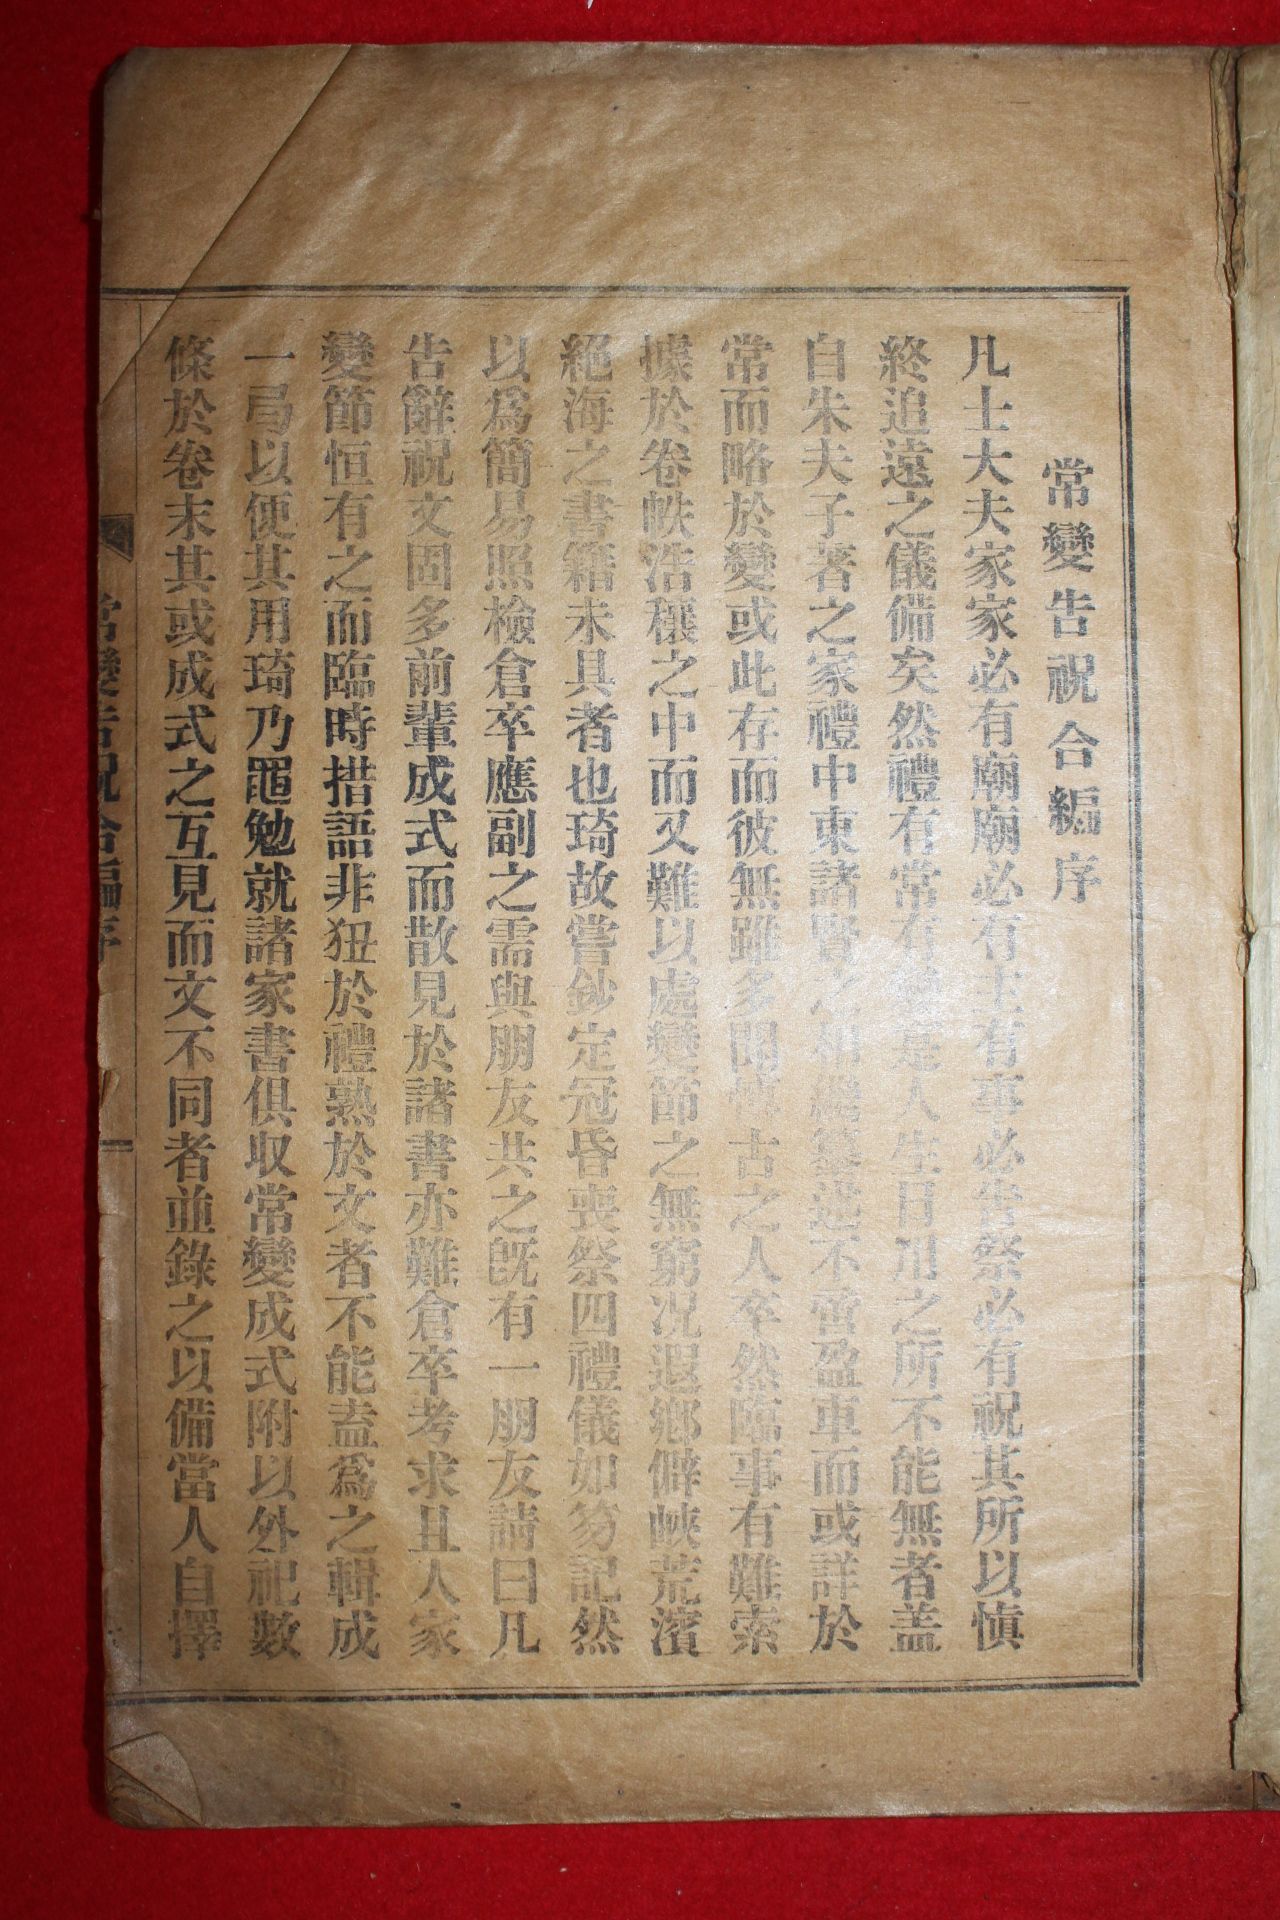 常變告祝合編序
凡士大夫家家必有廟廟必有主有事必告祭必有祝其所以愼
終追遠之儀備矣然禮有常有變是人生日用之所不能無者盖
自朱夫子著之家禮中東諸賢之相繼纂述不啻盈車而或詳於
常而略於變或此存而彼無雖多聞博古之人卒然臨事有難索
據於卷帙浩穰之中而又難以處變節之無窮况遐鄕僻峽荒濱
絕海之書籍未具者也琦故嘗鈔定冠昏喪祭四禮儀如笏記然
以爲簡易照檢倉卒應副之需與朋友共之旣有一朋友請曰凡
告辭祝文固多前輩成式而散見於諸書亦難倉卒考求且人家
變節恒有之而臨時措語非狃於禮熟於文者不能盍爲之輯成
一弓以便其用琦乃黽勉就諸家書俱取常變成式附以外祀數
條於卷末其或成式之互見而文不同者並錄之以備當人自擇
常變告祝合編序